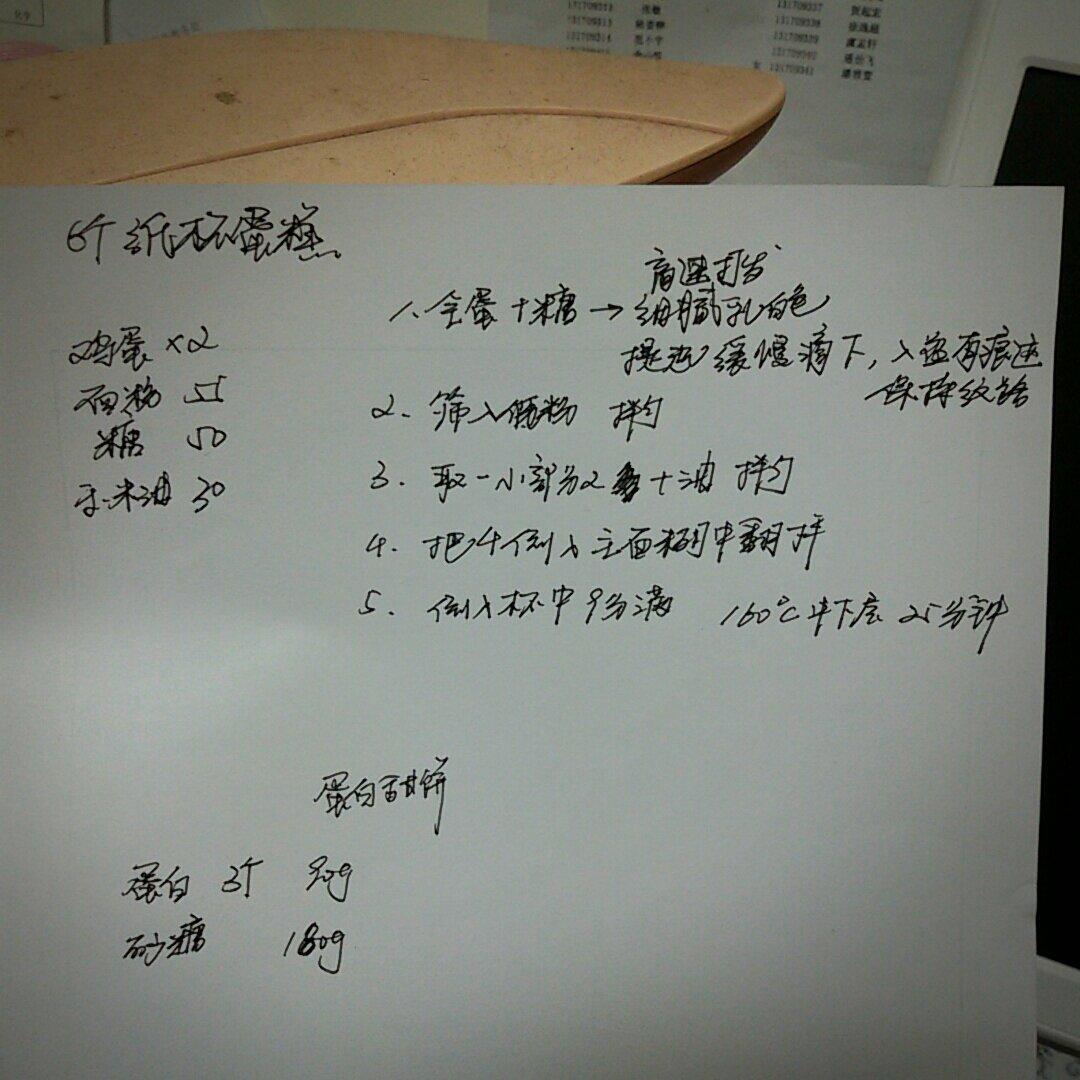 131709337
131709313
131709338
131709314
131709339
131709340
131709341
6个纸杯蛋糕
鸡蛋×2
面粉 55
糖 50
玉米油 30
1、全蛋+糖→高速打发
细腻乳白色
提起缓慢滴下,入盆有痕迹
保持纹路
2. 筛入面粉 拌匀
3. 取一小部分2+油 拌匀
4. 把4倒入主面糊中翻拌
5. 倒入杯中9分满 160℃中下层 25分钟
蛋白甜饼
蛋白 3个 90g
砂糖 180g